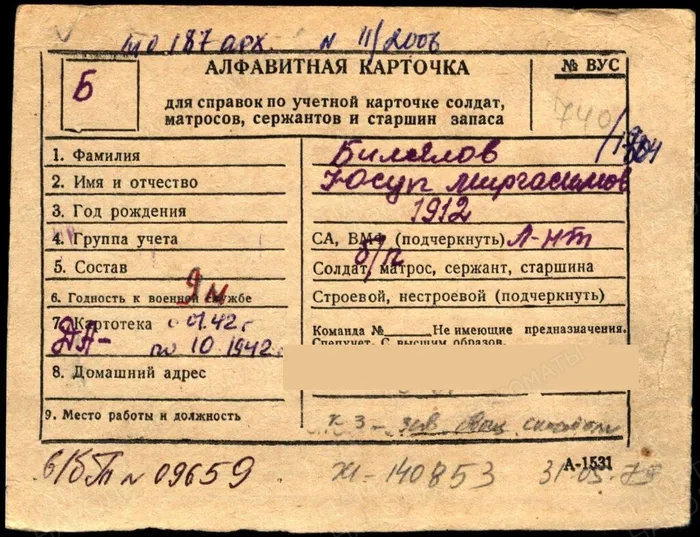 187 арх. N 11/2006
Б
АЛФАВИТНАЯ КАРТОЧКА
№ ВУС
для справок по учетной карточке солдат,
матросов, сержантов и старшин запаса
740
1. Фамилия Билялов
2. Имя и отчество Юсуп Миргасимов
3. Год рождения 1912
4. Группа учета СА, ВМФ (подчеркнуть) Л-нт
б/п
5. Состав Солдат, матрос, сержант, старшина
6. Годность к военной службе Строевой, нестроевой (подчеркнуть)
7. Картотека Команда № Не имеющие предназначения.
Спецучет. С высшим образов.
по 10.1942г.
8. Домашний адрес
9. Место работы и должность
N 09659 140853
А-1531